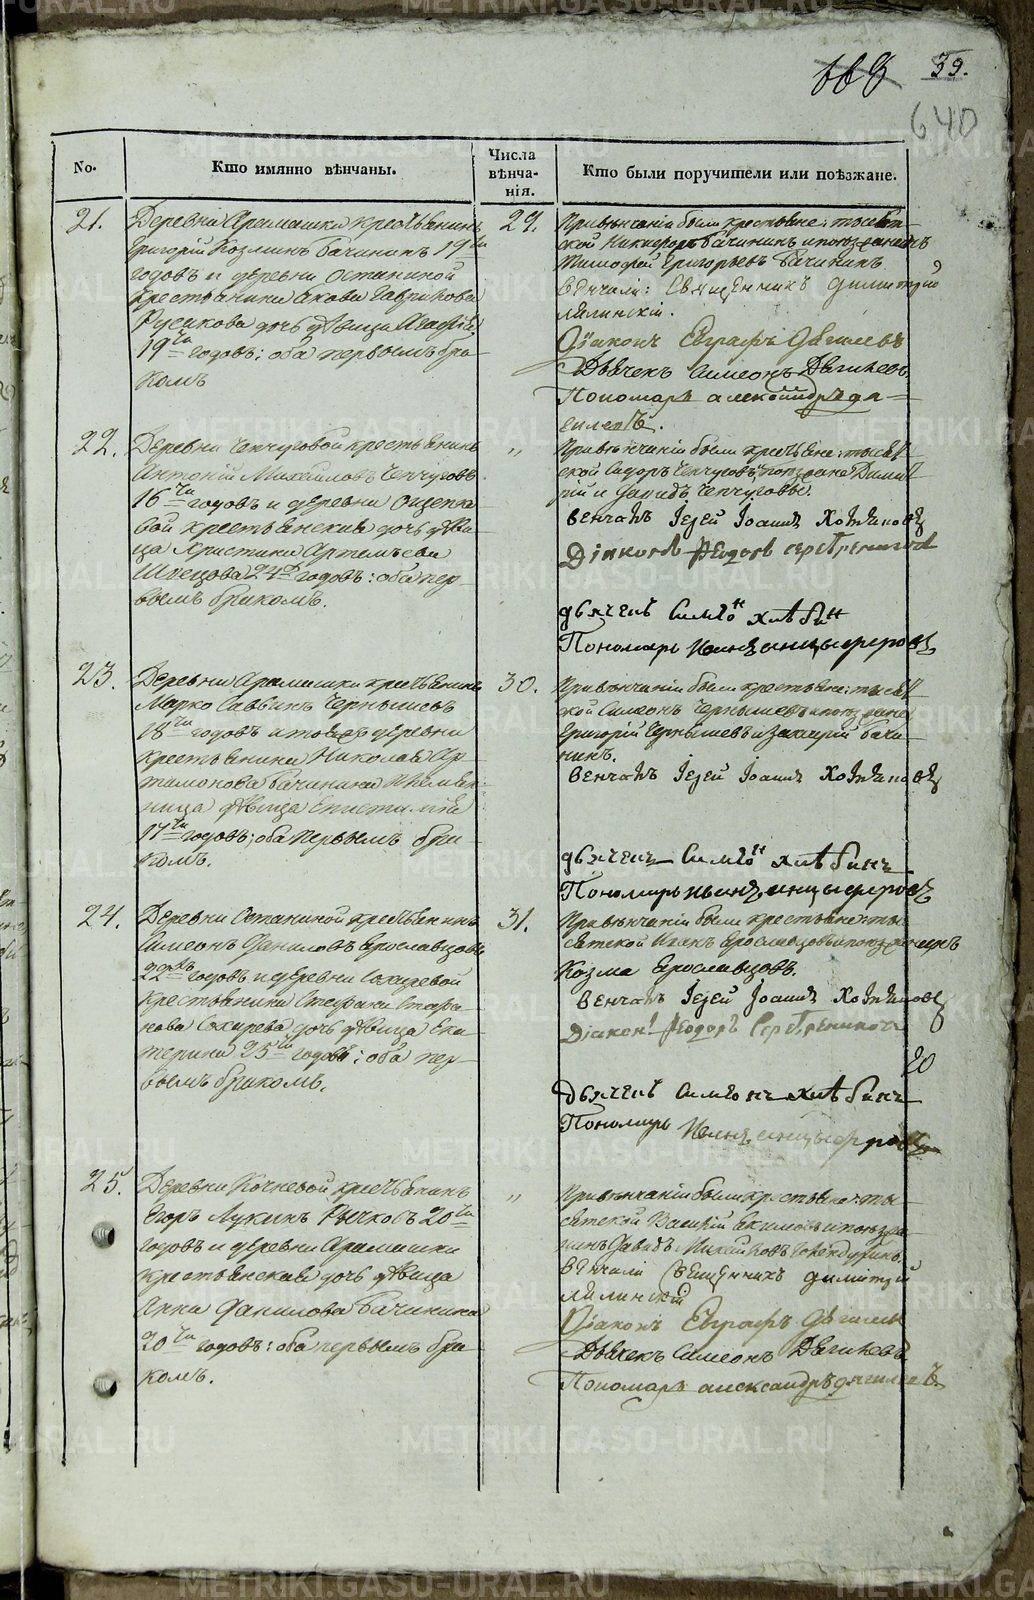 39.
640
No.
Кто имянно вѣнчаны.
Числа вѣнча-
нія.
Кто были поручители или поѣзжане.
21.
Деревни Арамашки крестьянинъ
Григорій Козминъ Бачининъ 19ти
годовъ и деревни Останиной
крестьянина Якова Гаврилова
Русакова дочь дѣвица Агафія
19ти годовъ: оба первымъ бра-
комъ
29.
При вѣнчаніи были крестьяне: тысят-
ской Никифоръ Бачининъ и поѣзжанинъ
Тимофей Григорьевъ Бачининъ
Вѣнчали: Священникъ Димитрій
Діаконъ Евграфъ Дягилевъ
Дьячекъ Симеонъ Дягилевъ
Пономарь Александръ Дя-
гилевъ.
22.
Деревни Чепчуговой крестьянинъ
Антоній Михайловъ Чепчуговъ
16ти годовъ и деревни Ощепко-
вой крестьянская дочь дѣви-
ца Христина Артемьева
Швецова 24 годовъ: оба пер-
вымъ бракомъ.
"
При вѣнчаніи были крестьяне: тысят-
ской Сидоръ Чепчуговъ, поѣзжане Димит-
рій и Давидъ Чепчуговы.
Венчалъ Іерей Іоаннъ
Діаконъ Ѳеодоръ Серебрениковъ
Дьячекъ Симеонъ Хлѣбинъ
Пономарь Іоаннъ Анцыферовъ
23.
Деревни Арамашки крестьянинъ
Марко Саввинъ Чернышевъ
18ти годовъ и тоя деревни
крестьянина Николая Ар-
тамонова Бачинина племян-
ница дѣвица Епистимія
17ти годовъ; оба первымъ бра-
комъ.
30.
При вѣнчаніи были крестьяне: тысят-
ской Симеонъ Чернышевъ и поѣзжане
Григорій Чернышевъ и Захарій Бачи-
нинъ.
Венчалъ Іерей Іоаннъ
Дьячекъ Симеонъ Хлѣбинъ
Пономарь Іоаннъ Анцыферовъ
24.
Деревни Останиной крестьянинъ
Симеонъ Даниловъ Ярославцовъ
22хъ годовъ и деревни Сохаревой
крестьянина Стефана
Сохарева дочь дѣвица Ека-
терина 25ти годовъ: оба пер-
вымъ бракомъ.
31.
При вѣнчаніи были крестьяне: ты-
сятской Иванъ Ярославцовъ и поѣзжанинъ
Козма Ярославцовъ.
Венчалъ Іерей Іоаннъ
Діаконъ Ѳеодоръ Серебрениковъ
Дьячекъ Симеонъ Хлѣбинъ
Пономарь Іоаннъ Анцыферовъ
25.
Деревни Кочневой крестьянинъ
Егоръ Лукинъ Рычковъ 20ти
годовъ и деревни Арамашки
крестьянская дочь дѣвица
Анна Данилова Бачинина
20ти годовъ: оба первымъ бра-
комъ.
"
При вѣнчаніи были крестьяне: ты-
сятской Василій Екимовъ и поѣзжа-
нинъ Давидъ
Вѣнчали Священникъ Димитрій
Діаконъ Евграфъ Дягилевъ
Дьячекъ Симеонъ Дягилевъ
Пономарь Александръ Дягилевъ.
METRIKI.GASO-URAL.RU